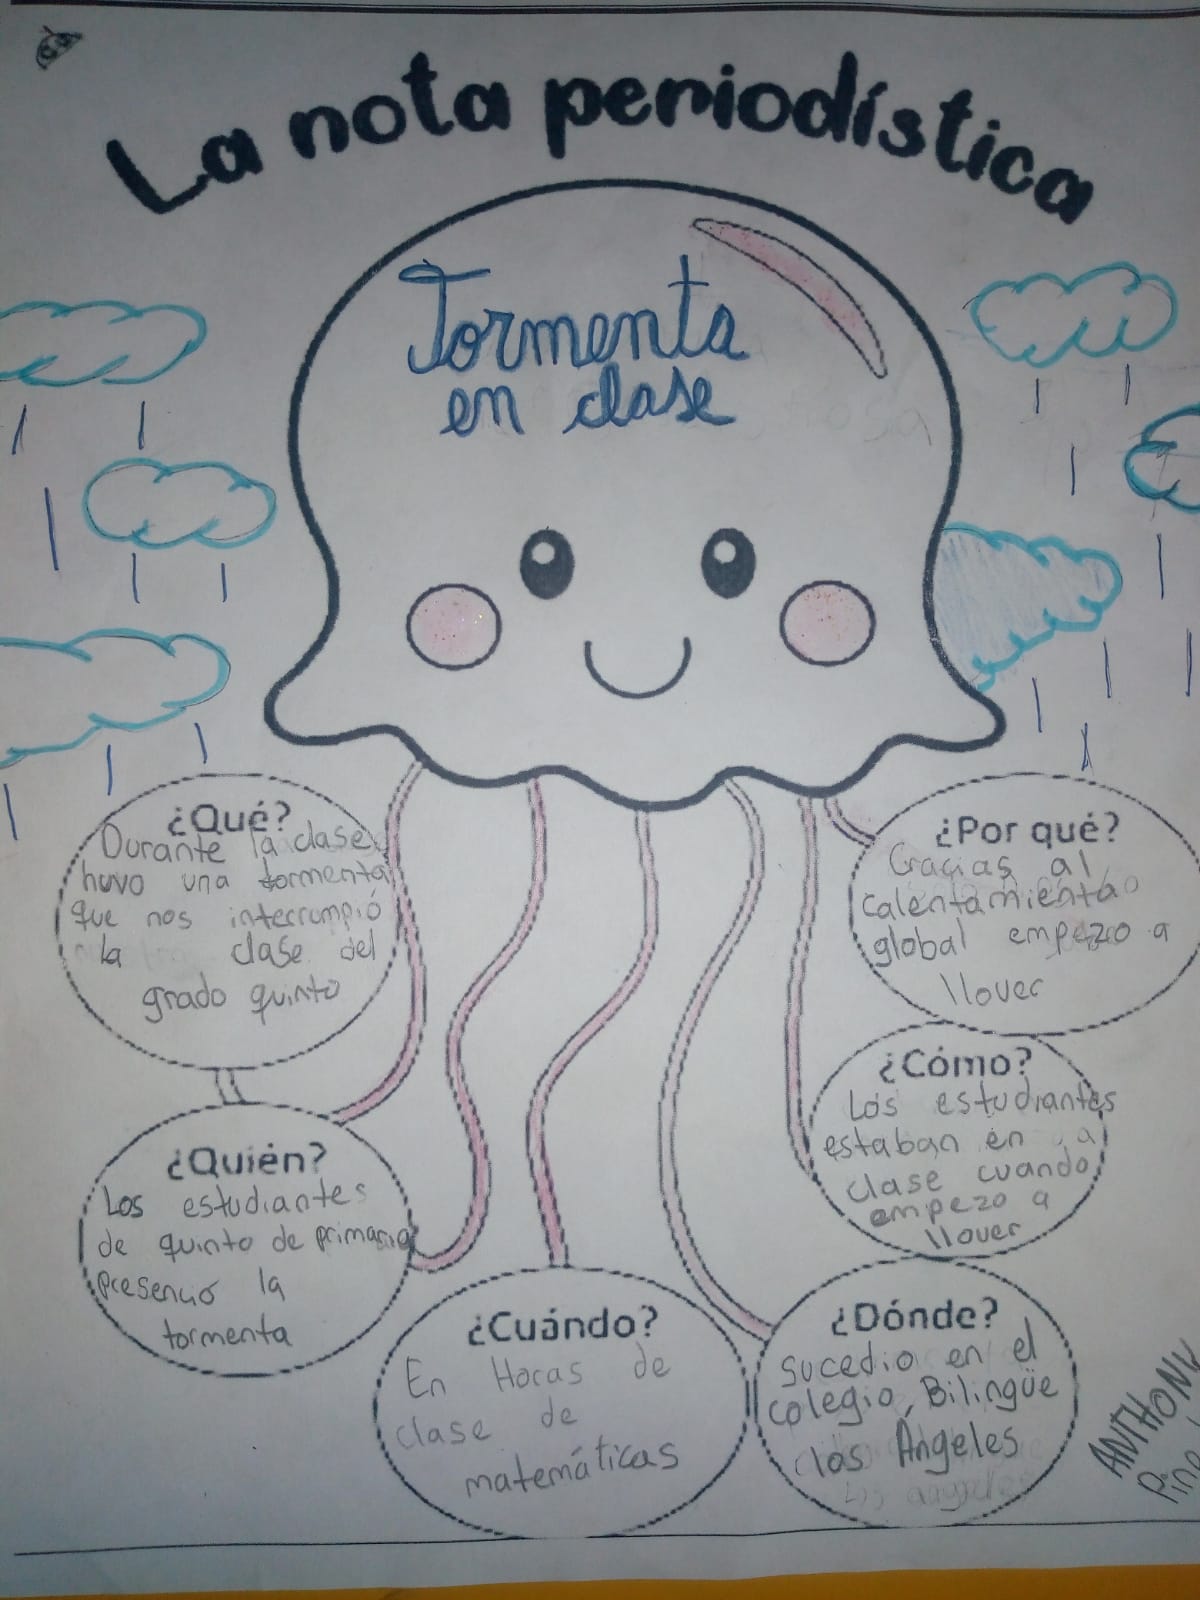 La nota periodística
Tormenta
en clase
¿Qué?
Durante la clase
huvo una tormenta
que nos interrumpió
la clase del
grado quinto
¿Por qué?
Gracias al
calentamiento
global empezo a
llover
¿Cómo?
Los estudiantes
estaban en a
clase cuando
empezo a
llover
¿Quién?
Los estudiantes
de quinto de primaria
presenció la
tormenta
¿Cuándo?
En Horas de
clase de
matemáticas
¿Dónde?
sucedio en el
colegio, Bilingüe
los Angeles
ANTHONY